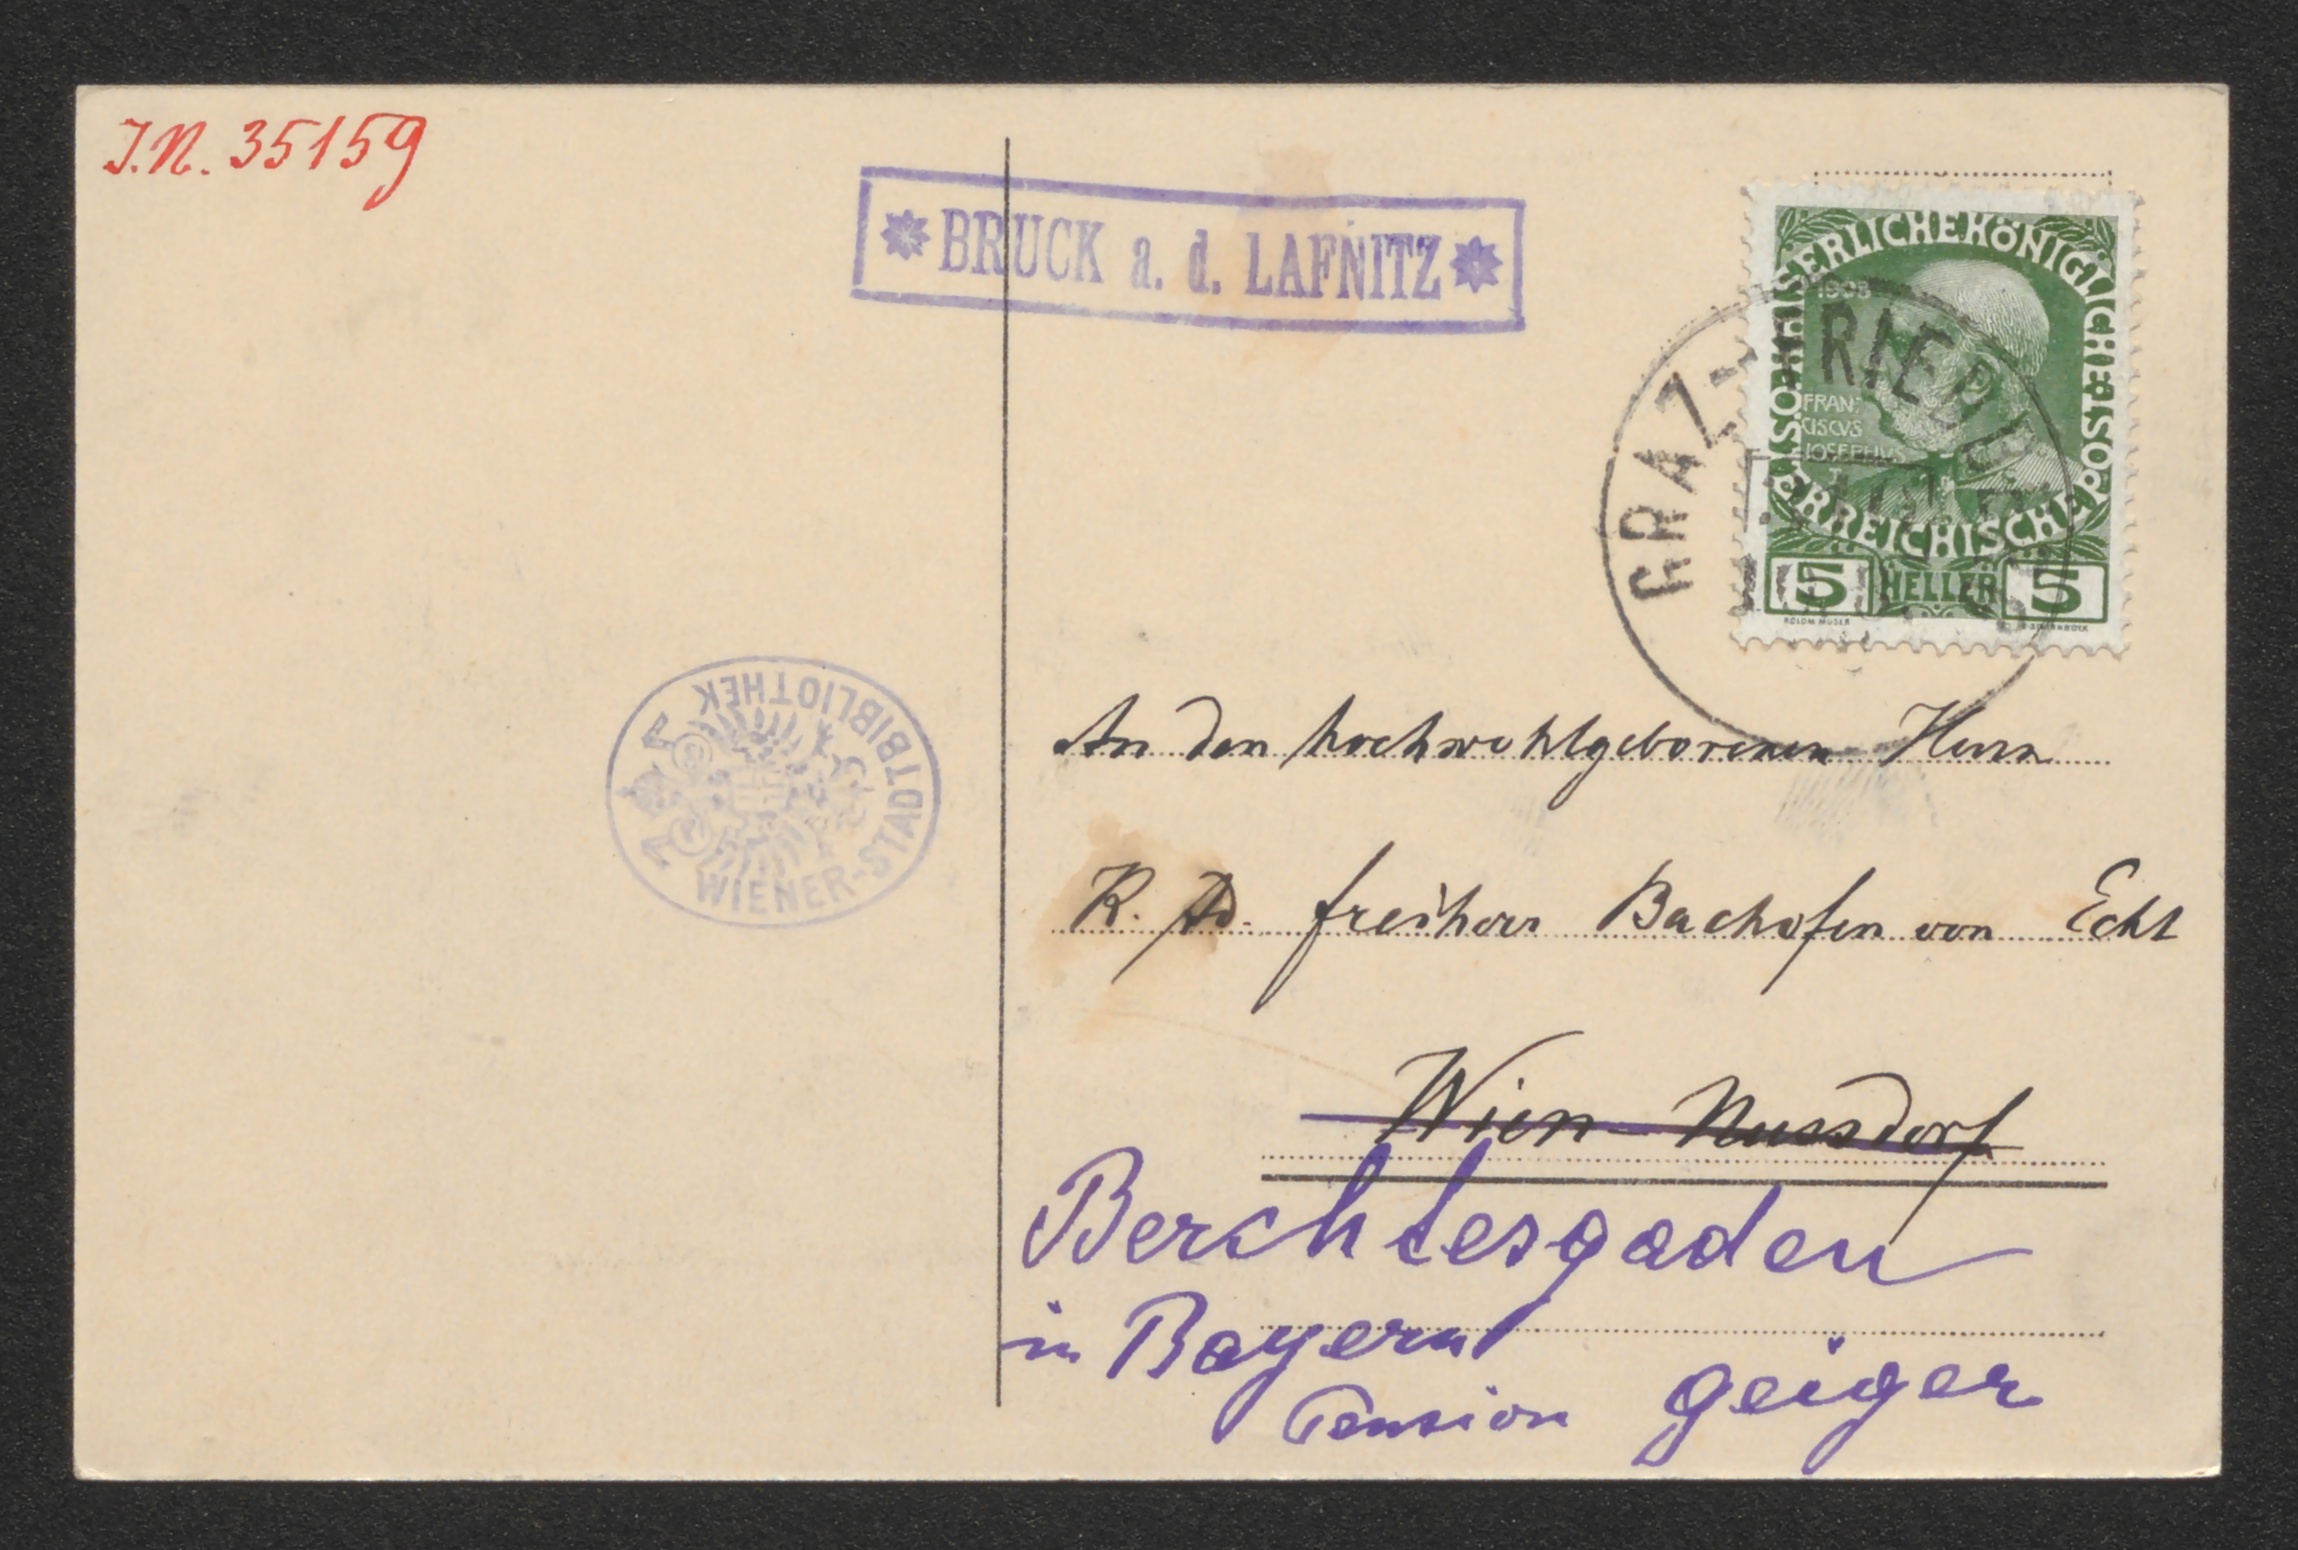 I.N. 35159
* BRUCK a. d. LAFNITZ *
KAISERLICHE KÖNIGLICHE ÖSTERREICHISCHE POST
1908
FRAN:
CISCVS
IOSEPHVS
I
5 HELLER 5
GRAZ-FRIED
WIENER-STADTBIBLIOTHEK
An den hochwohlgeborenen Herrn
K. Ad. freiherr Bachofen von Echt
Wien-Nussdorf
Berchtesgaden
in Bayern
Pension Geiger